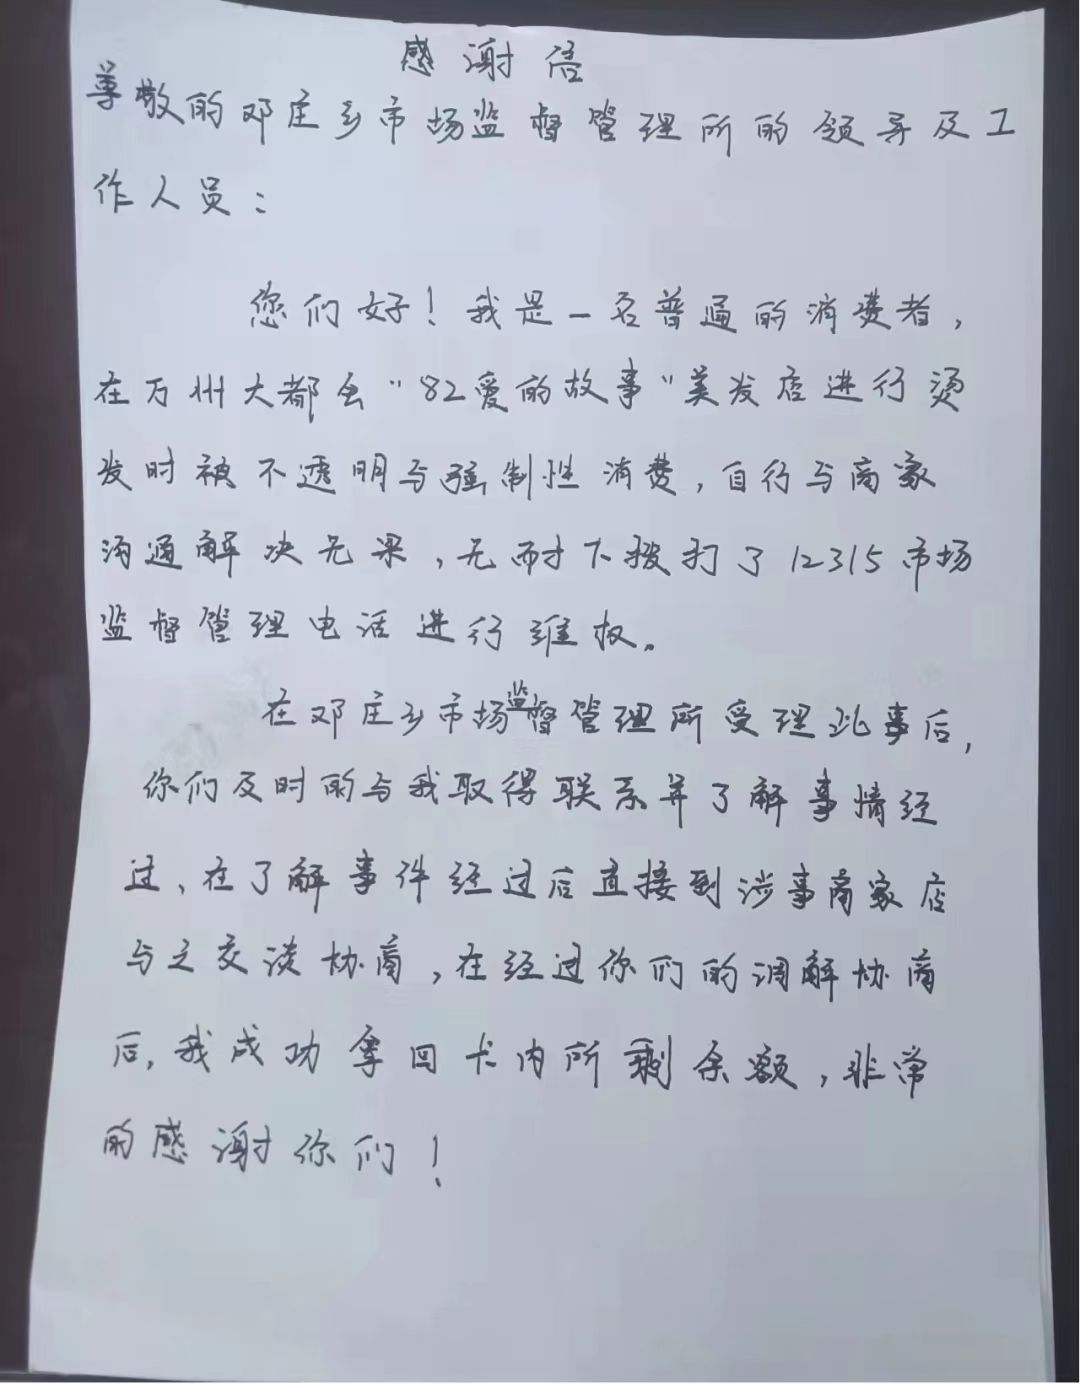 感谢信
尊敬的邓庄乡市场监督管理所的领导及工
作人员：
您们好！我是一名普通的消费者，
在万州大都会“82爱的故事”美发店进行烫
发时被不透明与强制性消费，自行与商家
沟通解决无果，无耐下拨打了12315市场
监督管理电话进行维权。
在邓庄乡市场监督管理所受理此事后，
你们及时的与我取得联系并了解事情经
过、在了解事件经过后直接到涉事商家店
与之交谈协商，在经过你们的调解协商
后，我成功拿回卡内所剩余额，非常
的感谢你们！